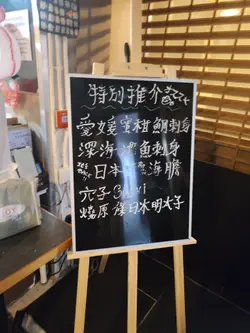 特別推介
愛媛蜜柑鯛刺身
深海 魚刺身
日本 海膽
穴子
燒原條日本明太子